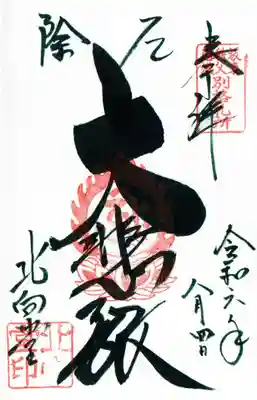 奉拝
厄除
大悲殿
令和六年
八月四日
北向堂
別格札所